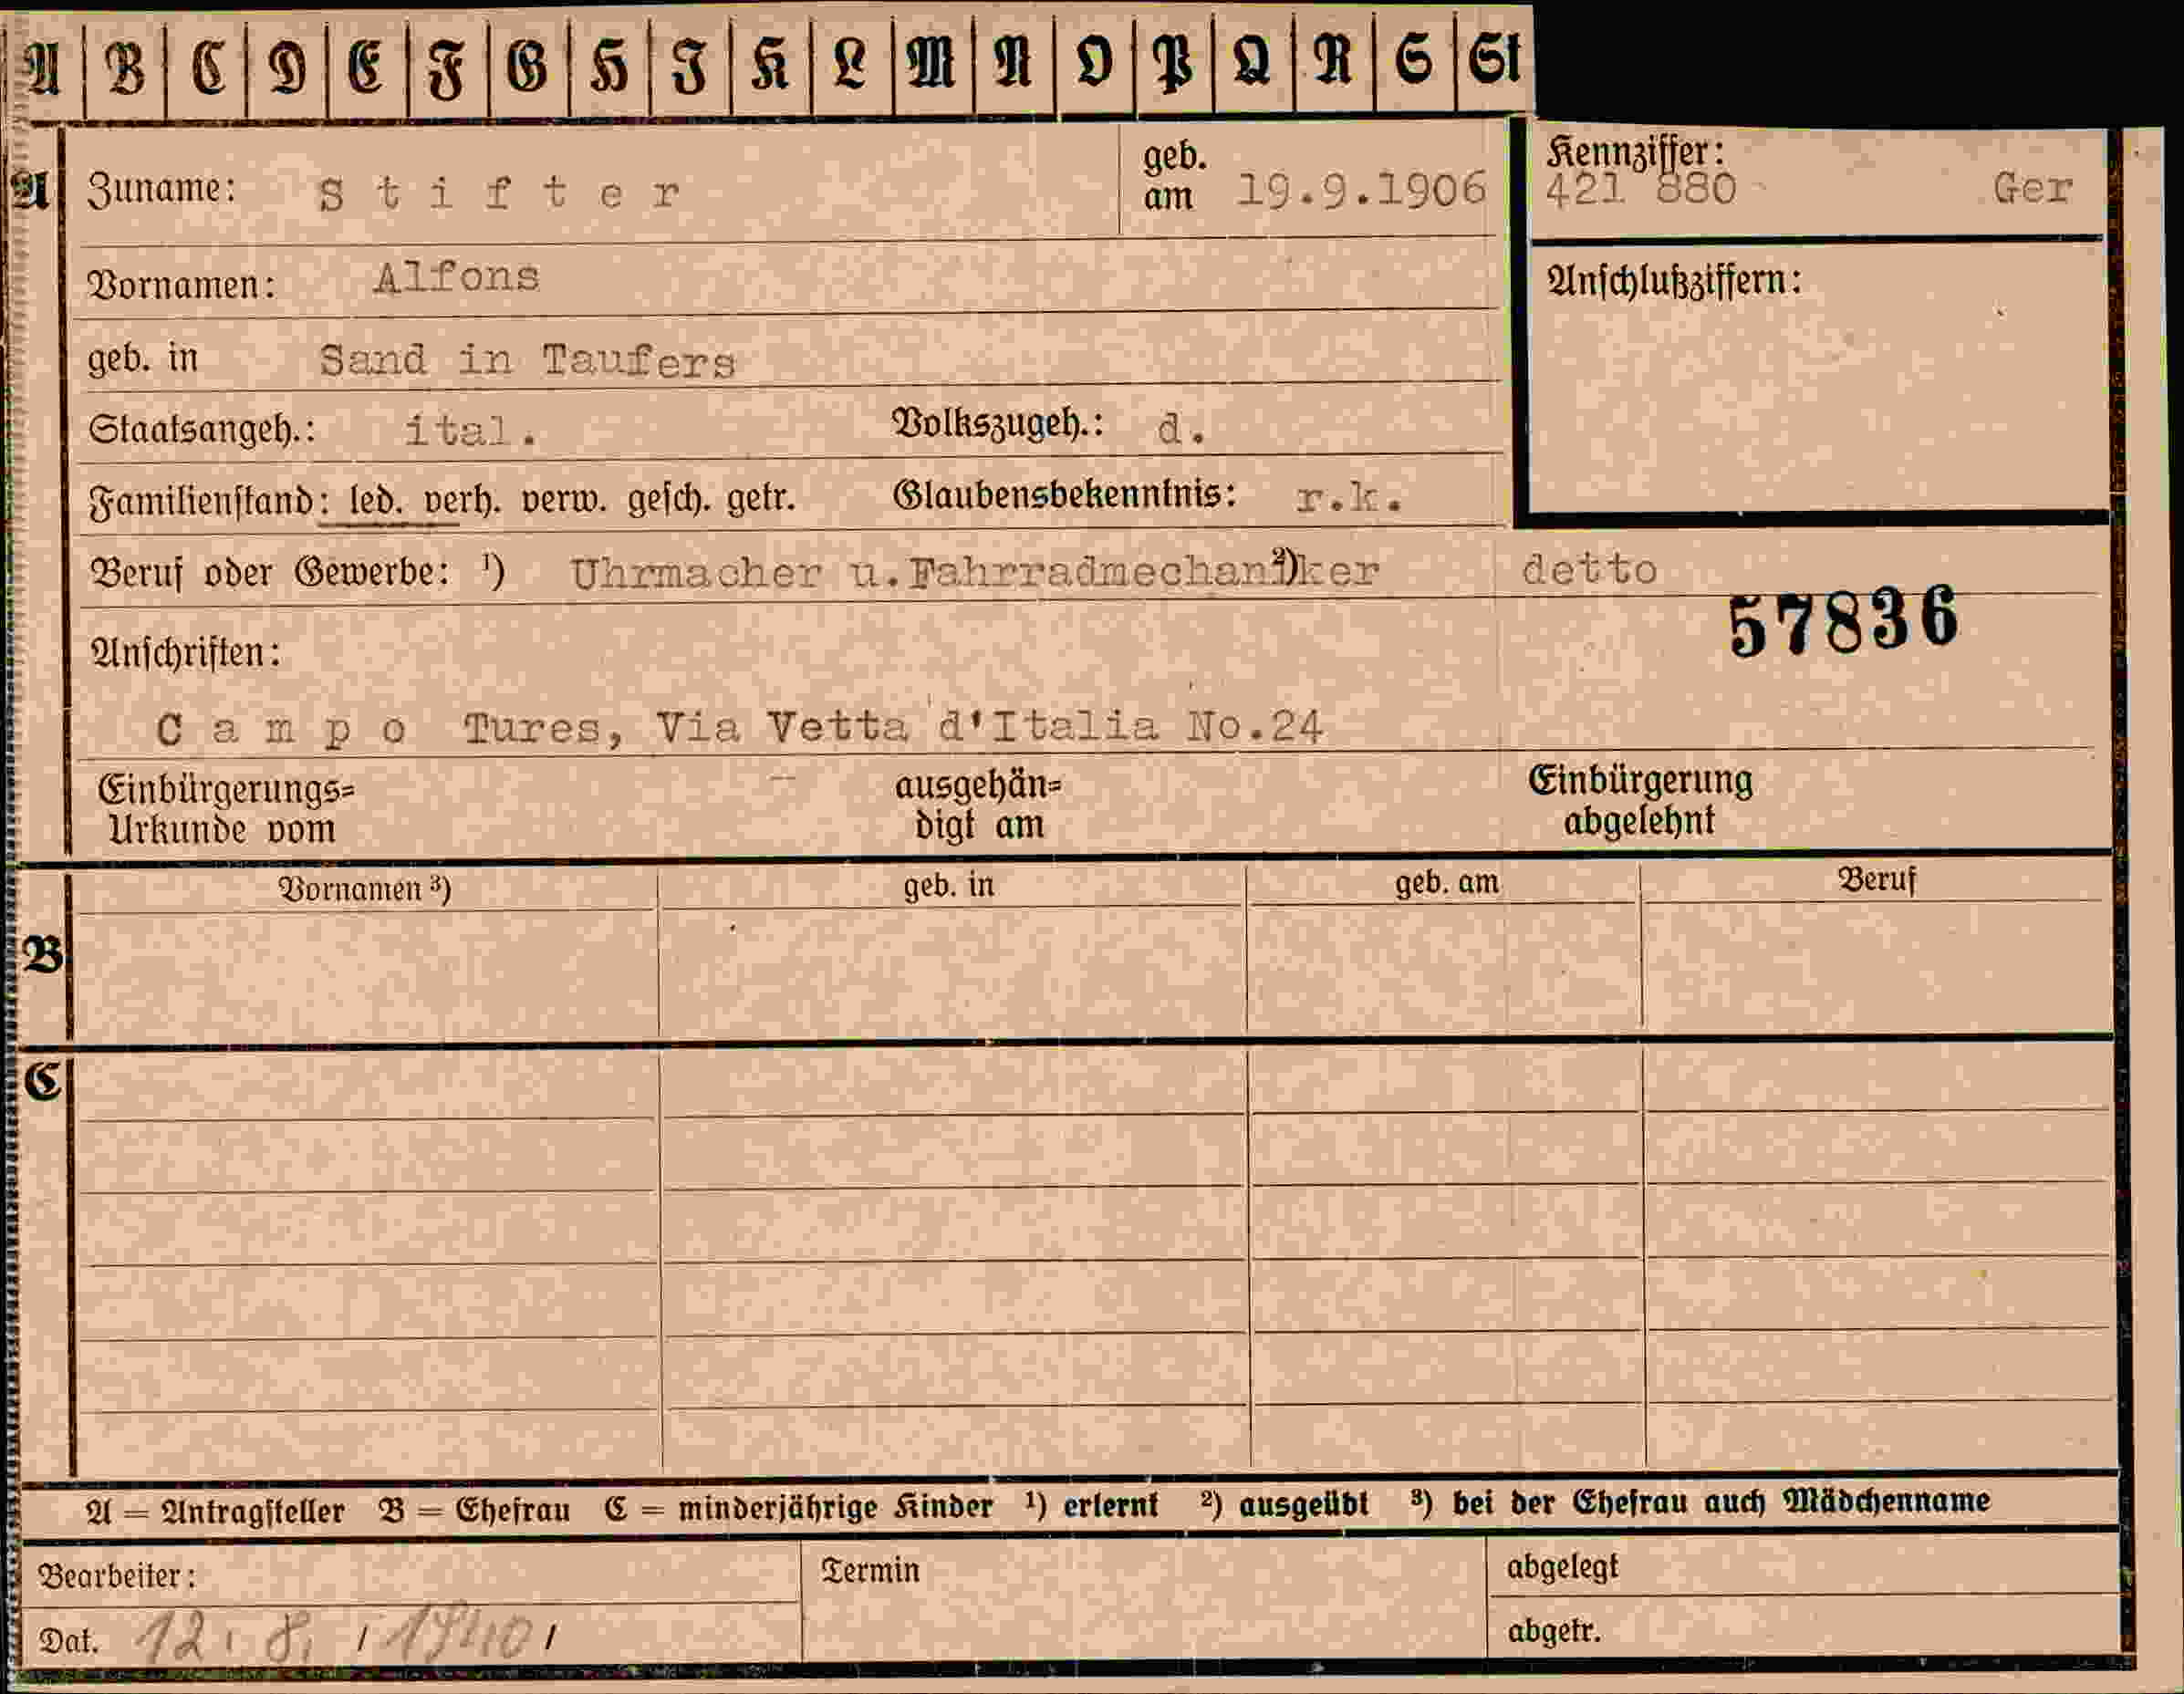 A B C D E F G H J K L M N O P Q R S St
A Zuname: Stifter geb. am 19.9.1906 Kennziffer: 421 880 Ger
Vornamen: Alfons Anschlußziffern:
geb. in Sand in Taufers
Staatsangeh.: ital. Volkszugeh.: d.
Familienstand: led. verh. verw. gesch. getr. Glaubensbekenntnis: r.k.
Beruf oder Gewerbe: ¹) Uhrmacher u.Fahrradmechaniker ²) detto
57836
Anschriften:
Campo Tures, Via Vetta d'Italia No.24
Einbürgerungs= ausgehän= Einbürgerung
Urkunde vom digt am abgelehnt
Vornamen ³) geb. in geb. am Beruf
B
C
A = Antragsteller B = Ehefrau C = minderjährige Kinder ¹) erlernt ²) ausgeübt ³) bei der Ehefrau auch Mädchenname
Bearbeiter: Termin abgelegt
Dat. 12. 8. 1940 abgetr.